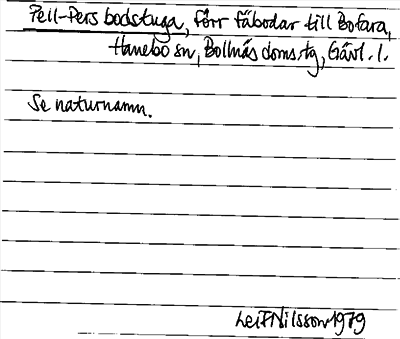 Pell-Pers bodstuga, förr fäbodar till Bofara,
Hanebo sn, Bollnäs doms.tg, Gävl. l.
Se naturnamn.
Leif Nilsson 1979